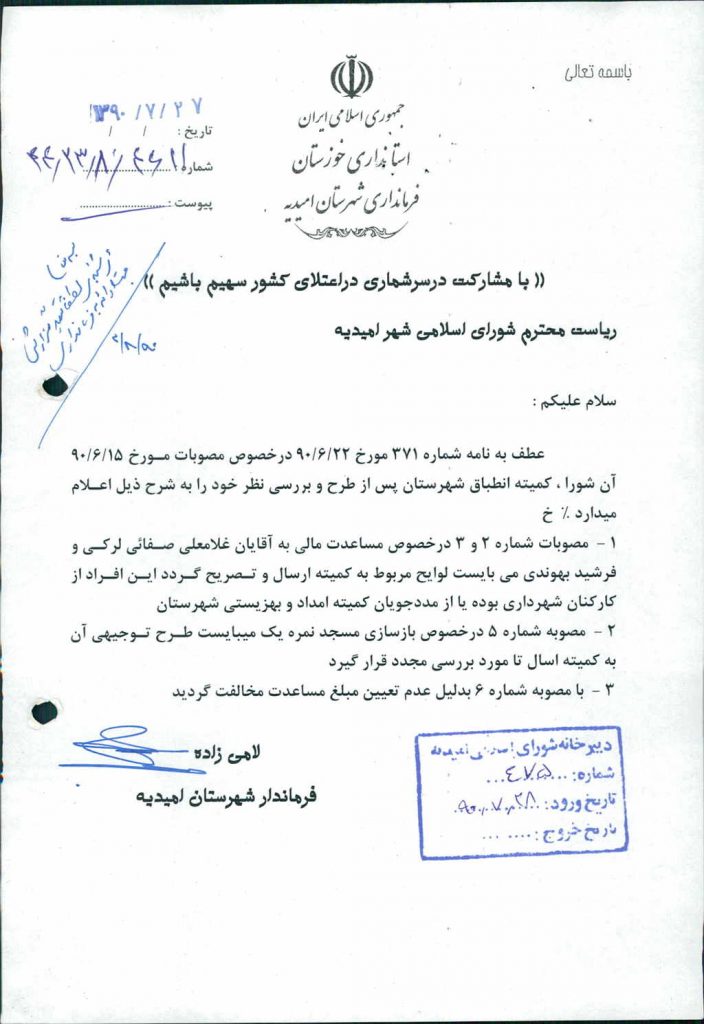 باسمه تعالی
جمهوری اسلامی ایران
استانداری خوزستان
فرمانداری شهرستان امیدیه
۱۳۹۰/۷/۲۷
تاریخ : / /
شماره
پیوست :
(( با مشارکت درسرشماری دراعتلای کشور سهیم باشیم ))
ریاست محترم شورای اسلامی شهر امیدیه
سلام علیکم :
عطف به نامه شماره ۳۷۱ مورخ ۹۰/۶/۲۲ درخصوص مصوبات مـورخ ۹۰/۶/۱۵
آن شورا ، کمیته انطباق شهرستان پس از طرح و بررسی نظر خود را به شرح ذیل اعـلام
میدارد ٪ خ
۱ - مصوبات شماره ۲ و ۳ درخصوص مساعدت مالی به آقایان غلامعلی صـفائی لرکـی و
فرشید بهوندی می بایست لوایح مربوط به کمیته ارسال و تـصریح گـردد ایـن افـراد از
کارکنان شهرداری بوده یا از مددجویان کمیته امداد و بهزیستی شهرستان
۲ - مصوبه شماره ۵ درخصوص بازسازی مسجد نمره یک میبایست طـرح تـوجیهی آن
به کمیته اسال تا مورد بررسی مجدد قرار گیرد
۳ - با مصوبه شماره ۶ بدلیل عدم تعیین مبلغ مساعدت مخالفت گردید
لامی زاده
فرماندار شهرستان امیدیه
دبیرخانه شورای اسلامی امیدیه
شماره:
تاریخ ورود: ۹۰،۷،۲۸
تاریخ خروج :